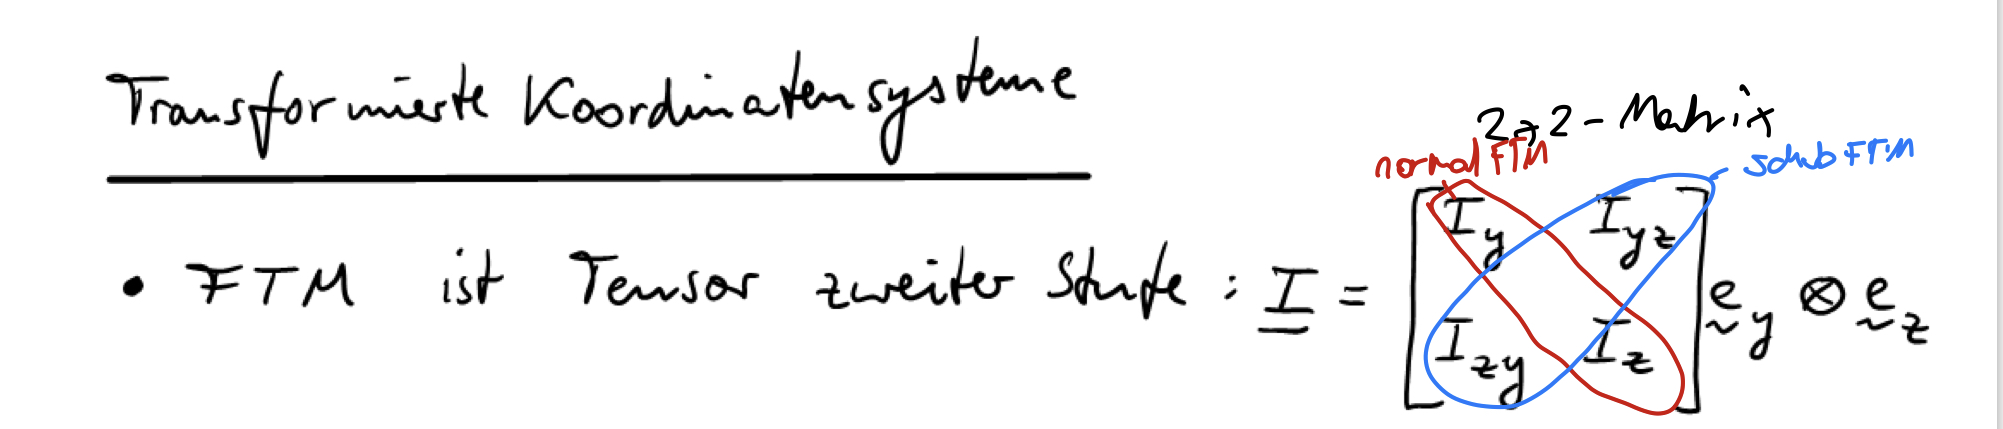 Transformierte Koordinatensysteme
2x2-Matrix
normal FTM
schub FTM
• FTM ist Tensor zweiter Stufe : I = [ I_y I_yz
I_zy I_z ] e_y ⊗ e_z